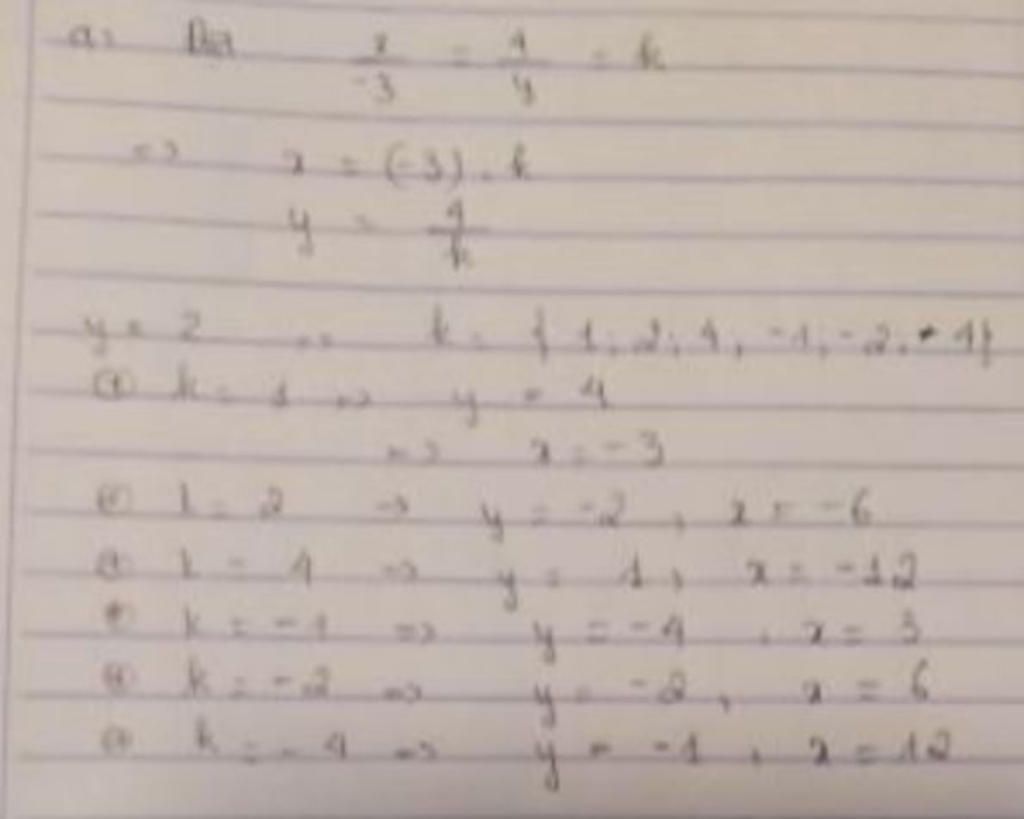 a, Đặt x/-3 = 4/y = k
=> x = (-3) . k
y = 4/k
y = 2 => k = { 1; 2; 4; -1; -2; -4}
⊕ k = 1 => y = 4
=> x = -3
⊕ k = 2 => y = -2, x = -6
⊕ k = 4 => y = 1, x = -12
⊕ k = -1 => y = -4, x = 3
⊕ k = -2 => y = -2, x = 6
⊕ k = -4 => y = -1, x = 12